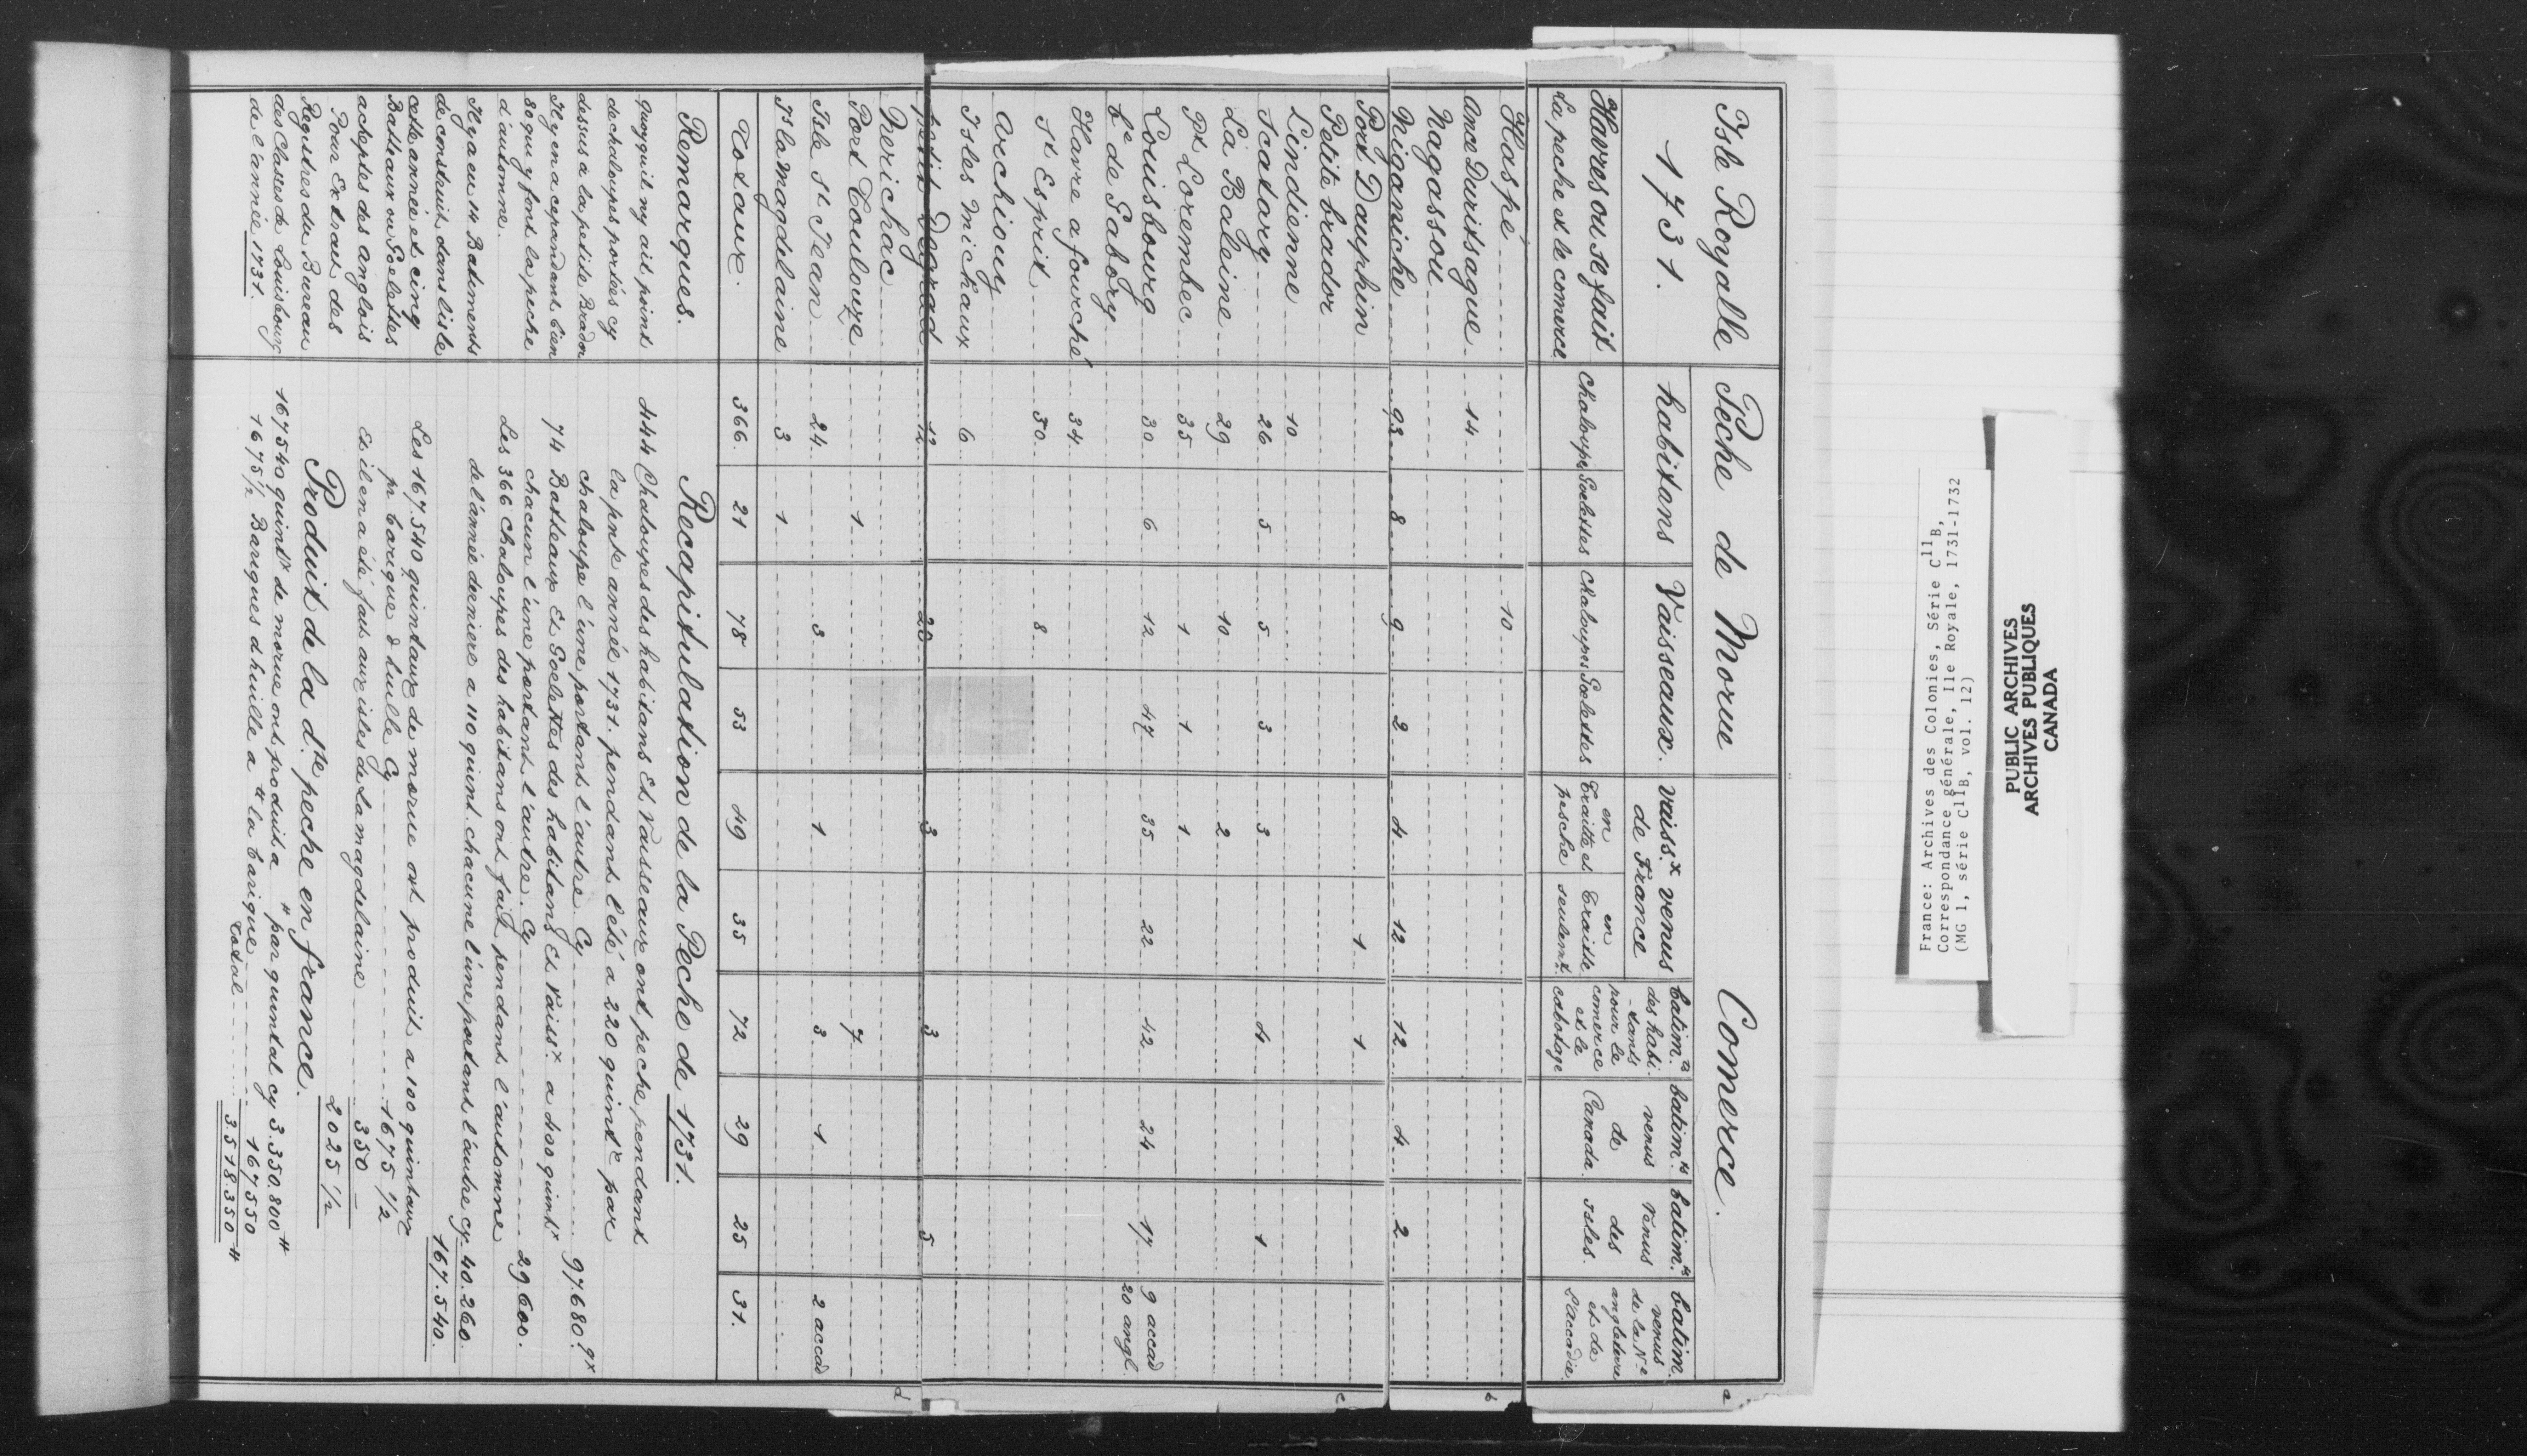 Isle Royalle Pêche de Morue Comerce.
1731. habitans Vaisseaux. Vaiss.x venus de France batim.ts des habitants pour le comerce et le cabotage batim.ts venus de Canada batim.ts venus des Isles. batim. venus de la N.e angleterre et de l'accadie
Havres ou se fait La peche et le comerce Chaloupes Goelettes Chaloupes Goelettes en Traitte et pesche en Traitte seulemt.
Haspé 10
Ance Duritsague 14
Nagassou
Niganiche 93 8 9 2 4 12 12 4 2
Port Dauphin 1 1
Petite brador
Lindienne 10
Scatary 26 5 5 3 3 4 1
La Baleine 29 10 2
Pt. Lorembec 35 1 1 1
Louisbourg 30 6 12 47 35 22 42 24 17 9 accad
b.e de Gabory 20 angl.
Havre a fourché 34
St Esprit 50 8
archiouy
Isles Michaux 6
petit Degrad 12 20 3 3 5
Nerichac
Port Toulouze 1 7
Isle St Jean 24 3 1 3 1 2 accad
Is la Magdelaine 3 1
Totaux. 366 21 78 53 49 35 72 29 25 31.
Remarques.
quoyquil ny ait point
de chaloupes portées cy
dessus à la petitte Brador
Il y en a cependant bien
80 qui y font la peche
d'automne.
Il y a eu 14 Batiments
de construit dans lisle
cette année et cinq
Batteaux ou Goelettes
acheptés des anglois
Pour Extrait des
Registres du Bureau
des Classes de Louisbourg
de l'année 1731.
Recapitulation de la Peche de 1731.
444 Chaloupes des habitans Et Vaisseaux ont peche pendant
la pnte année 1731. pendant l'été a 220 quintx par
chaloupe l'une portant l'autre Cy 97.680. qx
74 Batteaux Et Goelettes des habitans Et Vaissx a 400 quintx
chacun l'une portant l'autre. Cy 29.600.
Les 366 Chaloupes des habitans ont fait pendant l'automne
de l'année derniere a 110 quint. chacune l'une portant l'autre cy 40.260.
167.540.
Les 167.540 quintaux de morue ont produit a 100 quintaux
pr barique d'huille Cy 1675 1/2
Et il en a été fait aux isles de la magdelaine 350 -
2025 1/2
Produit de la d.te peche en france.
167540 quintx de morue ont produit a # par quintal cy 3.350.800#
1675 1/2 Bariques d'huille a # la barique 167550
Total 3.518.350#
a
b
c
d
France: Archives des Colonies, Série C11B,
Correspondance générale, Ile Royale, 1731-1732
(MG 1, série C11B, vol. 12)
PUBLIC ARCHIVES
ARCHIVES PUBLIQUES
CANADA